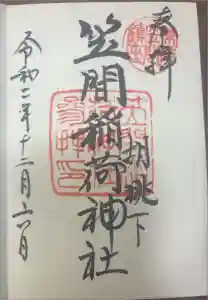 奉拝
胡桃下
笠間稲荷神社
令和二年十二月二六日